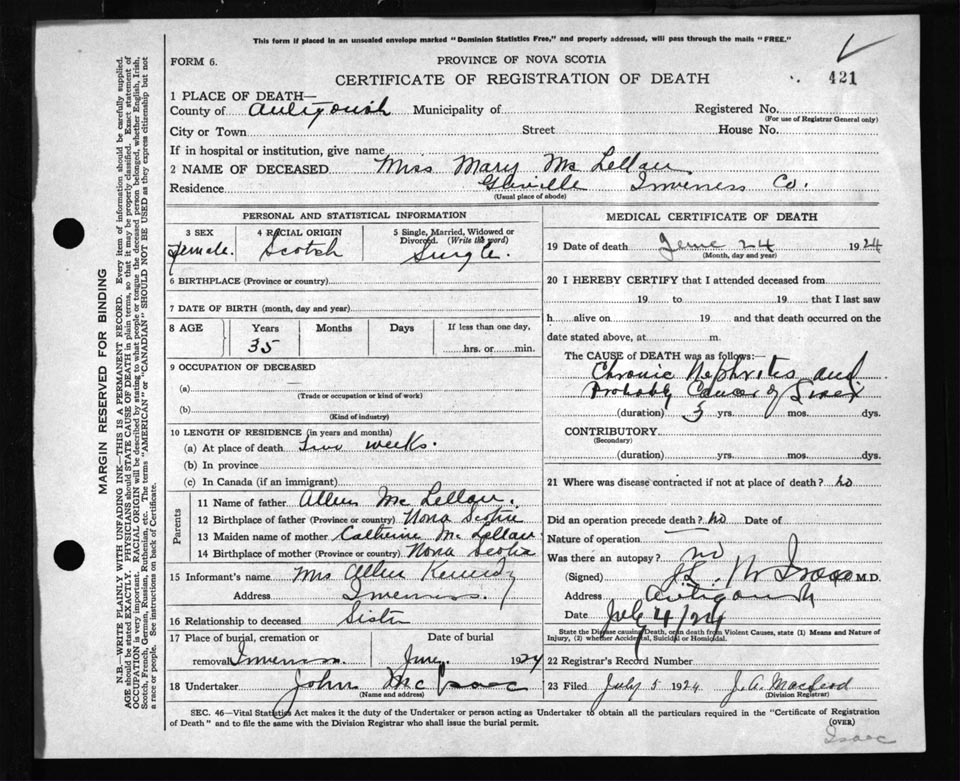 This form if placed in an unsealed envelope marked "Dominion Statistics Free," and properly addressed, will pass through the mails "FREE."
FORM 6.
PROVINCE OF NOVA SCOTIA
CERTIFICATE OF REGISTRATION OF DEATH
421
1 PLACE OF DEATH—
County of Antigonish Municipality of
Registered No.
(For use of Registrar General only)
City or Town Street House No.
If in hospital or institution, give name
2 NAME OF DECEASED Miss Mary Mc Lellan
Residence Glenville Inverness Co.
(Usual place of abode)
PERSONAL AND STATISTICAL INFORMATION
3 SEX
Female.
4 RACIAL ORIGIN
Scotch
5 Single, Married, Widowed or Divorced. (Write the word)
Single.
6 BIRTHPLACE (Province or country)
7 DATE OF BIRTH (month, day and year)
8 AGE Years Months Days If less than one day,
35 hrs. or min.
9 OCCUPATION OF DECEASED
(a)
(Trade or occupation or kind of work)
(b)
(Kind of industry)
10 LENGTH OF RESIDENCE (in years and months)
(a) At place of death Two weeks.
(b) In province
(c) In Canada (if an immigrant)
Parents
11 Name of father Allen Mc Lellan.
12 Birthplace of father (Province or country) Nova Scotia
13 Maiden name of mother Catherine Mc Lellan
14 Birthplace of mother (Province or country) Nova Scotia
15 Informant's name Mrs Allen Kennedy
Address Inverness.
16 Relationship to deceased Sister
17 Place of burial, cremation or removal Inverness.
Date of burial
June 1924
18 Undertaker John McIsaac
(Name and address)
MEDICAL CERTIFICATE OF DEATH
19 Date of death June 24 1924
(Month, day and year)
20 I HEREBY CERTIFY that I attended deceased from
19 to 19 that I last saw
h alive on 19 and that death occurred on the
date stated above, at m.
The CAUSE of DEATH was as follows:—
Chronic Nephritis and
Probably Cancer of
(duration) 3 yrs. mos. dys.
CONTRIBUTORY
(Secondary)
(duration) yrs. mos. dys.
21 Where was disease contracted if not at place of death? no
Did an operation precede death? no Date of
Nature of operation
Was there an autopsy? no
(Signed) M.D.
Address Antigonish
Date July 4/24
State the Disease causing Death, or in death from Violent Causes, state (1) Means and Nature of
Injury, (2) whether Accidental, Suicidal or Homicidal.
22 Registrar's Record Number
23 Filed July 5 1924 J. A. Macleod
(Division Registrar)
SEC. 46—Vital Statistics Act makes it the duty of the Undertaker or person acting as Undertaker to obtain all the particulars required in the "Certificate of Registration
of Death" and to file the same with the Division Registrar who shall issue the burial permit.
(OVER)
Isaac
MARGIN RESERVED FOR BINDING
N.B.—WRITE PLAINLY WITH UNFADING INK—THIS IS A PERMANENT RECORD. Every item of information should be carefully supplied.
AGE should be stated EXACTLY. PHYSICIANS should STATE CAUSE OF DEATH in plain terms, so that it may be properly classified. Exact statement of
OCCUPATION is very important. RACIAL ORIGIN will be described by stating to what people or tongue the deceased person belonged, whether English, Irish,
Scotch, French, German, Russian, Ruthenian, etc. The terms "AMERICAN" or "CANADIAN" SHOULD NOT BE USED as they express citizenship but not
a race or people. See instructions on back of Certificate.